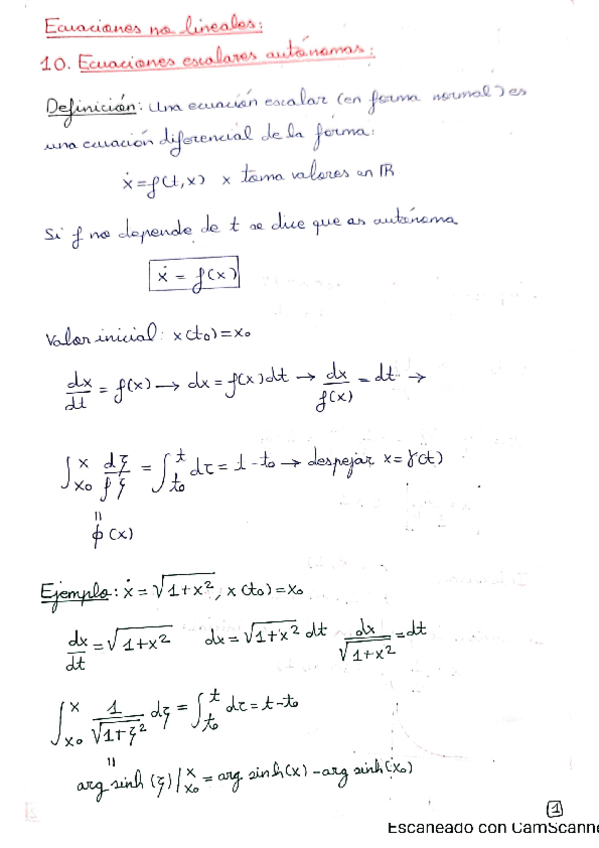 Ecuaciones no lineales:
10. Ecuaciones escalares autónomas:
Definición: Una ecuación escalar (en forma normal) es
una ecuación diferencial de la forma:
ẋ = f(t,x) x toma valores en ℝ
Si f no depende de t se dice que es autónoma
ẋ = f(x)
Valor inicial: x(t₀)=x₀
dx/dt = f(x) → dx = f(x)dt → dx/f(x) = dt →
∫ₓ₀ˣ dξ/f ξ = ∫ₜ₀ᵗ dτ = t - t₀ → despejar x = γ(t)
=
ϕ(x)
Ejemplo: ẋ = √(1+x²), x(t₀)=x₀
dx/dt = √(1+x²) dx = √(1+x²) dt dx/√(1+x²) = dt
∫ₓ₀ˣ 1/√(1+ξ²) dξ = ∫ₜ₀ᵗ dτ = t-t₀
=
arg sinh (ξ)|ₓ₀ˣ = arg sinh(x) - arg sinh(x₀)
1
Escaneado con CamScanne